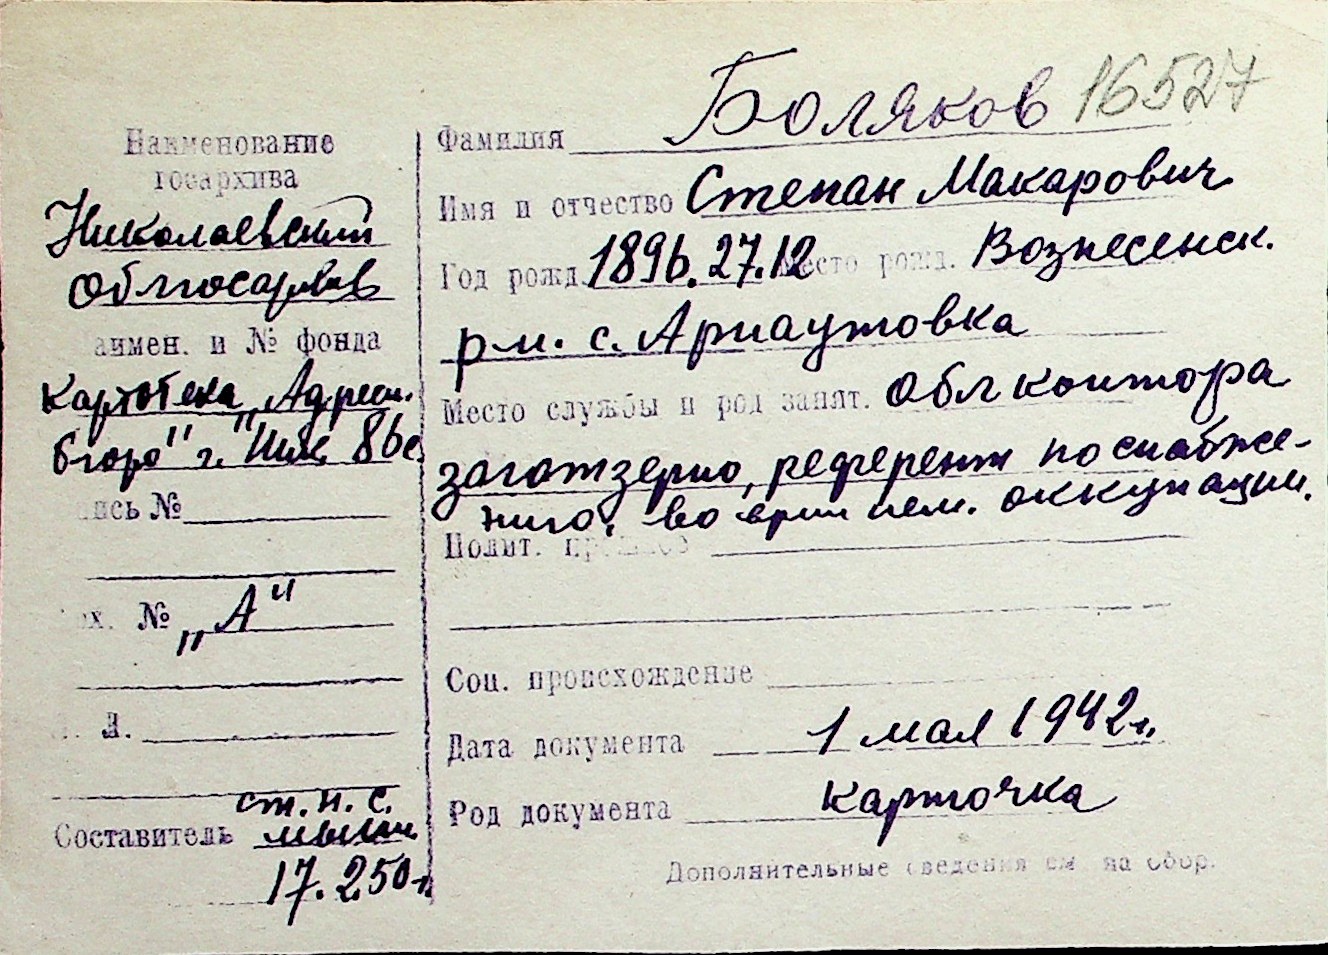 Наименование
госархива
Николаевский
Облгосархив
аимен. и № фонда
картотека „Адресн.
бюро" г. Ник.
пись №
х. № „А"
Л.
ст. н. с.
Составитель
17.2.50 г.
Боляков 16527
Фамилия
Имя и отчество Степан Макарович
Год рожд. 1896. 27.12 Место рожд. Вознесенск.
р-н. с. Арнаутовка
Место службы и род занят. Облконтора
заготзерно, референт по снабже-
нию, во врем нем. оккупации.
Полит. прошлое
Соц. происхождение
Дата документа 1 мая 1942 г.
Род документа карточка
Дополнительные сведения см. на обор.